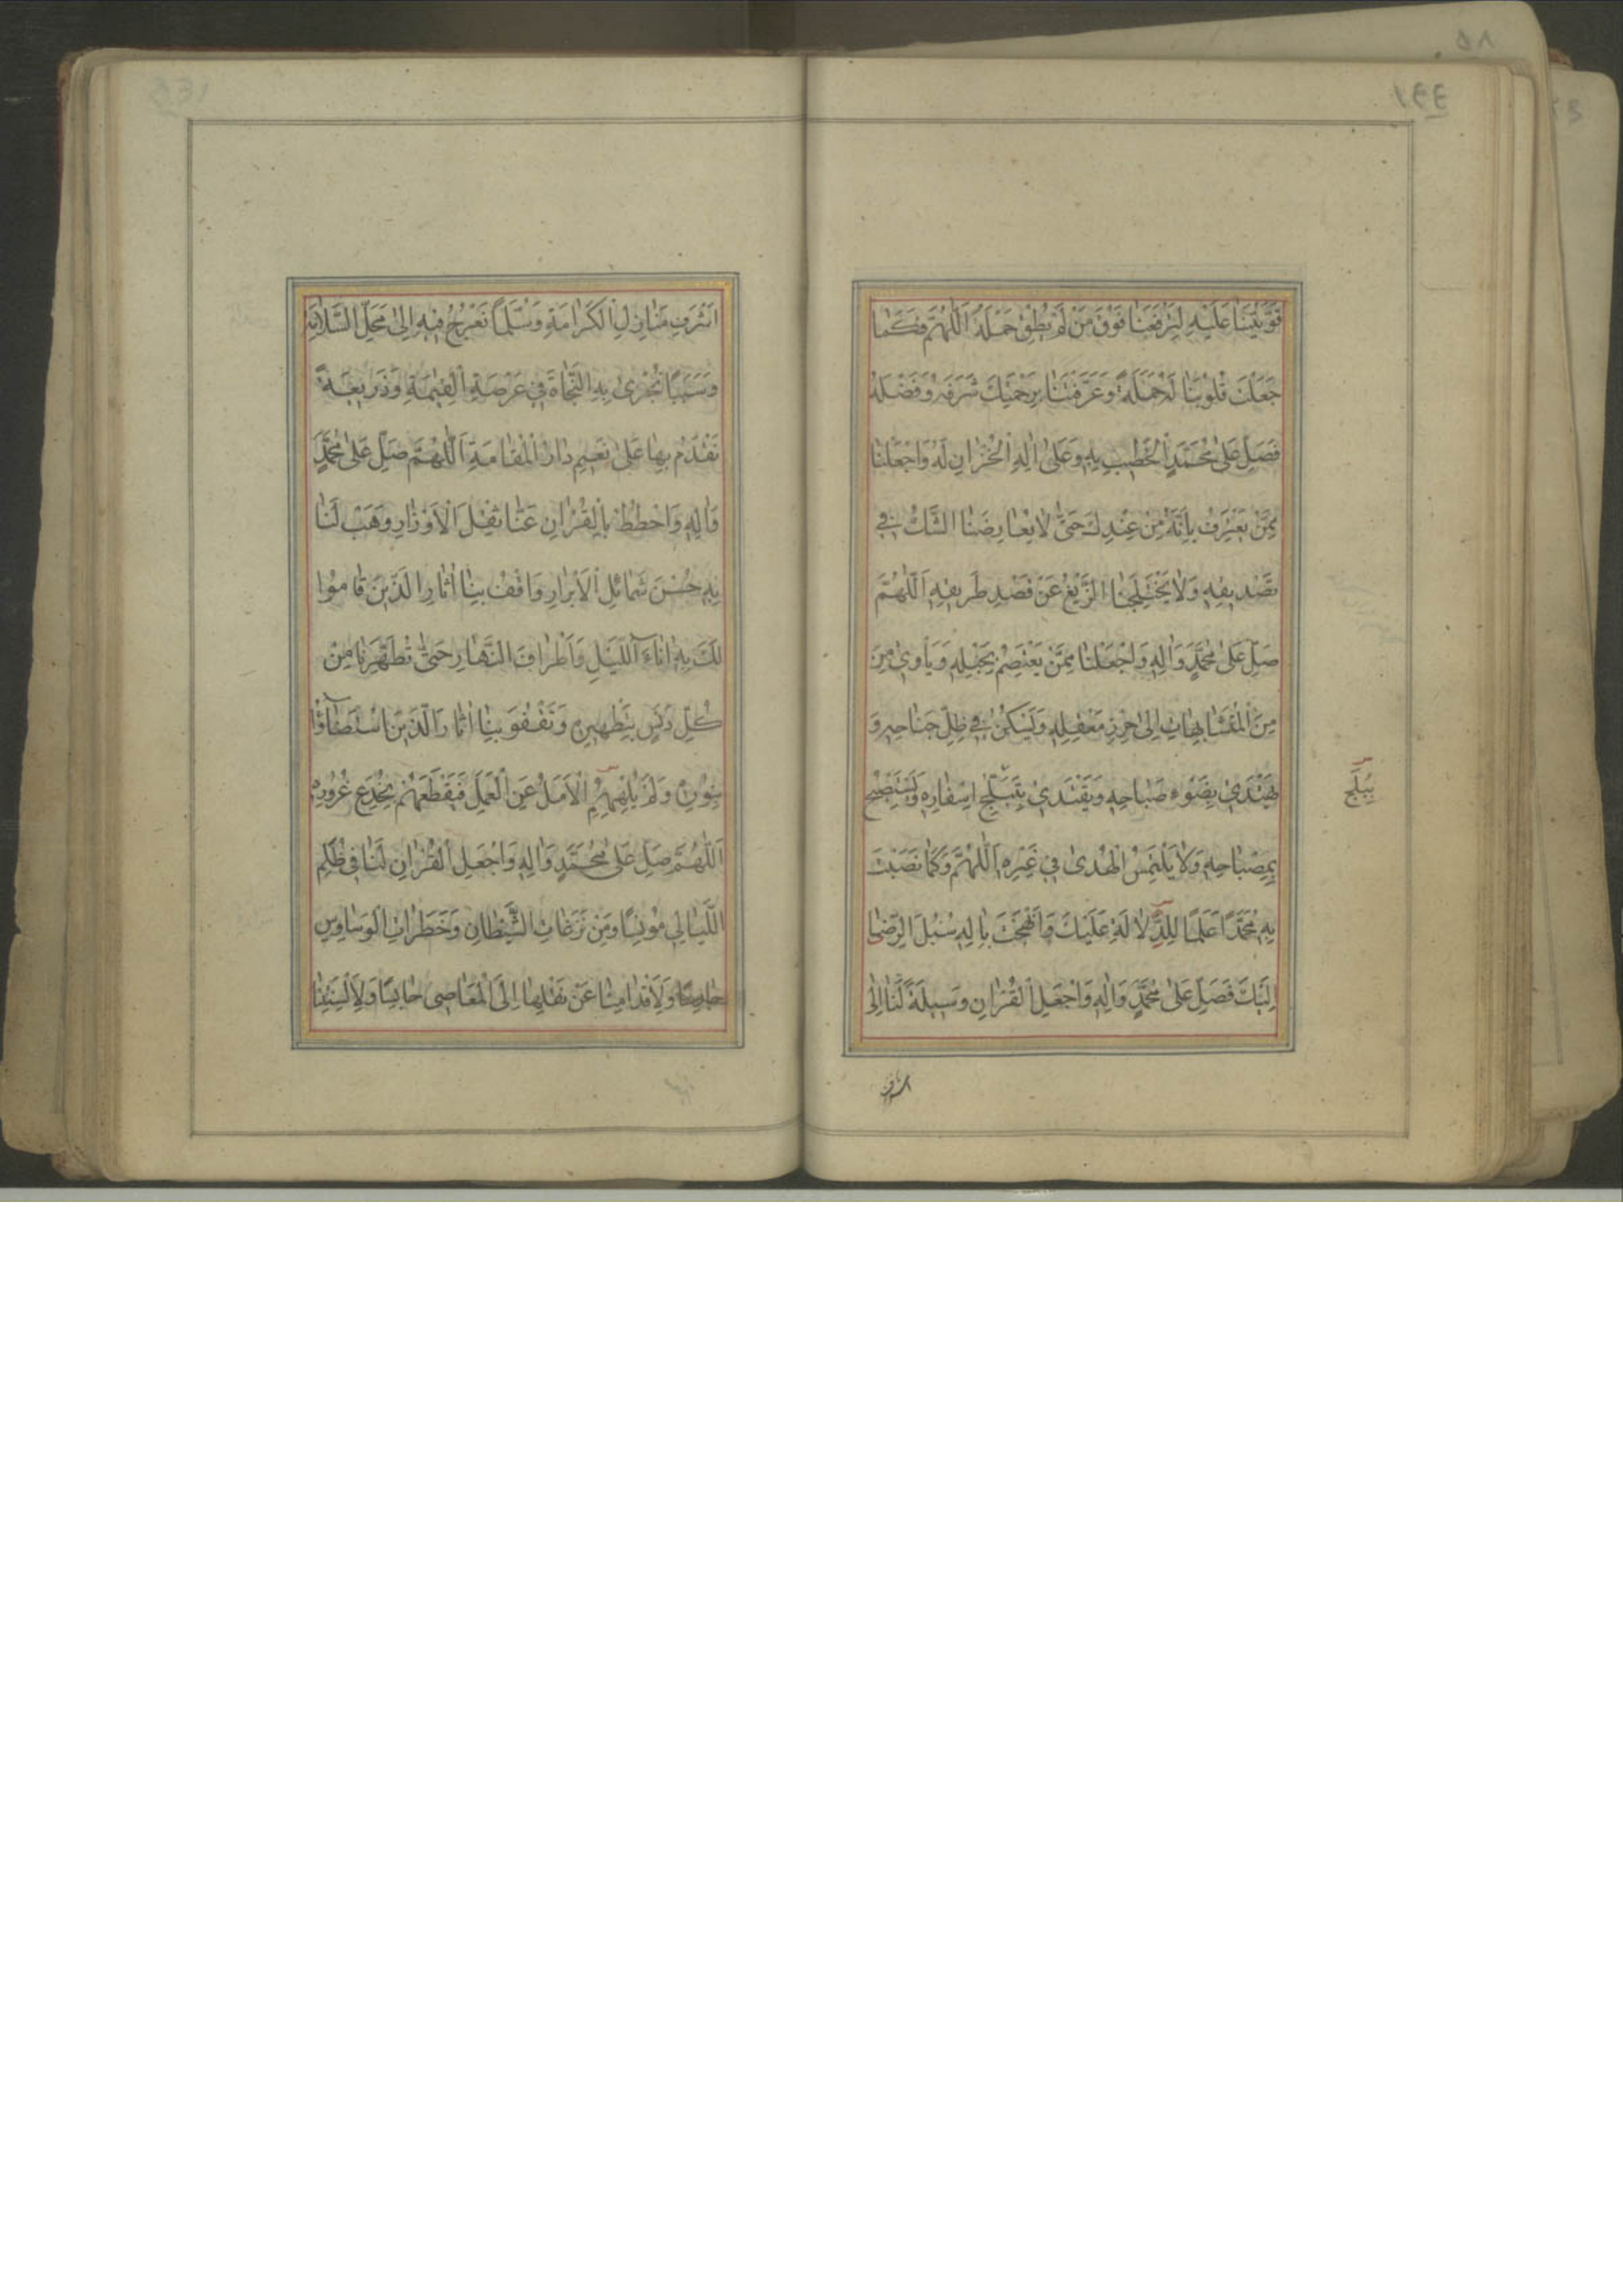 قَوَّيْتَنَا عَلَيْهِ لِتَرْفَعَنَا فَوْقَ مَنْ لَمْ يُطِقْ حَمْلَهُ اَللّٰهُمَّ فَكَمَا
جَعَلْتَ قُلُوبَنَا لَهُ حَمَلَةً وَعَرَّفْتَنَا بِرَحْمَتِكَ شَرَفَهُ وَفَضْلَهُ
فَصَلِّ عَلٰى مُحَمَّدٍ الْخَطِيبِ بِهِ وَعَلٰى اٰلِهِ الْخُزَّانِ لَهُ وَاجْعَلْنَا
مِمَّنْ يَعْتَرِفُ بِاَنَّهُ مِنْ عِنْدِكَ حَتّٰى لَا يُعَارِضَنَا الشَّكُّ فِي
تَصْدِيقِهِ وَلَا يَخْتَلِجَنَا الزَّيْغُ عَنْ قَصْدِ طَرِيقِهِ اَللّٰهُمَّ
صَلِّ عَلٰى مُحَمَّدٍ وَاٰلِهِ وَاجْعَلْنَا مِمَّنْ يَعْتَصِمُ بِحَبْلِهِ وَيَأْوِي مِنَ
مِنَ الْمُتَشَابِهَاتِ اِلٰى حِرْزِ مَعْقِلِهِ وَيَسْكُنُ فِي ظِلِّ جَنَاحِهِ وَ
يَهْتَدِي بِضَوْءِ صَبَاحِهِ وَيَقْتَدِي بِتَبَلُّجِ اِسْفَارِهِ وَيَسْتَصْبِحُ
بِبَلَجِ
بِمِصْبَاحِهِ وَلَا يَلْتَمِسُ الْهُدٰى فِي غَيْرِهِ اَللّٰهُمَّ وَكَمَا نَصَبْتَ
بِهِ مُحَمَّدًا عَلَمًا لِلدِّلَالَةِ عَلَيْكَ وَاَنْهَجْتَ بِاٰلِهِ سُبُلَ الرِّضَا
اِلَيْكَ فَصَلِّ عَلٰى مُحَمَّدٍ وَاٰلِهِ وَاجْعَلِ الْقُرْاٰنَ وَسِيلَةً لَنَا اِلٰى
اشرف
اَشْرَفِ مَنَازِلِ الْكَرَامَةِ وَسُلَّمًا نَعْرُجُ فِيهِ اِلٰى مَحَلِّ السَّلَامَةِ
وَسَبَبًا نُجْزٰى بِهِ النَّجَاةَ فِي عَرْصَةِ الْقِيٰمَةِ وَذَرِيعَةً
نَقْدَمُ بِهَا عَلٰى نَعِيمِ دَارِ الْمُقَامَةِ اَللّٰهُمَّ صَلِّ عَلٰى مُحَمَّدٍ
وَاٰلِهِ وَاحْطُطْ بِالْقُرْاٰنِ عَنَّا ثِقْلَ الْاَوْزَارِ وَهَبْ لَنَا
بِهِ حُسْنَ شَمَائِلِ الْاَبْرَارِ وَاقْفُ بِنَا اٰثَارَ الَّذِينَ قَامُوا
لَكَ بِهِ اٰنَاءَ اللَّيْلِ وَاَطْرَافَ النَّهَارِ حَتّٰى تُطَهِّرَنَا مِنْ
كُلِّ دَنَسٍ بِتَطْهِيرِهِ وَتَقْفُوَ بِنَا اٰثَارَ الَّذِينَ اسْتَضَاؤُا
بِنُورِهِ وَلَمْ يُلْهِهِمُ الْاَمَلُ عَنِ الْعَمَلِ فَيَقْطَعَهُمْ بِخُدَعِ غُرُورِهِ
اَللّٰهُمَّ صَلِّ عَلٰى مُحَمَّدٍ وَاٰلِهِ وَاجْعَلِ الْقُرْاٰنَ لَنَا فِي ظُلَمِ
اللَّيَالِي مُونِسًا وَمِنْ نَزَغَاتِ الشَّيْطَانِ وَخَطَرَاتِ الْوَسَاوِسِ
حَارِسًا وَلِاَقْدَامِنَا عَنْ نَقْلِهَا اِلَى الْمَعَاصِي حَابِسًا وَلِاَلْسِنَتِنَا